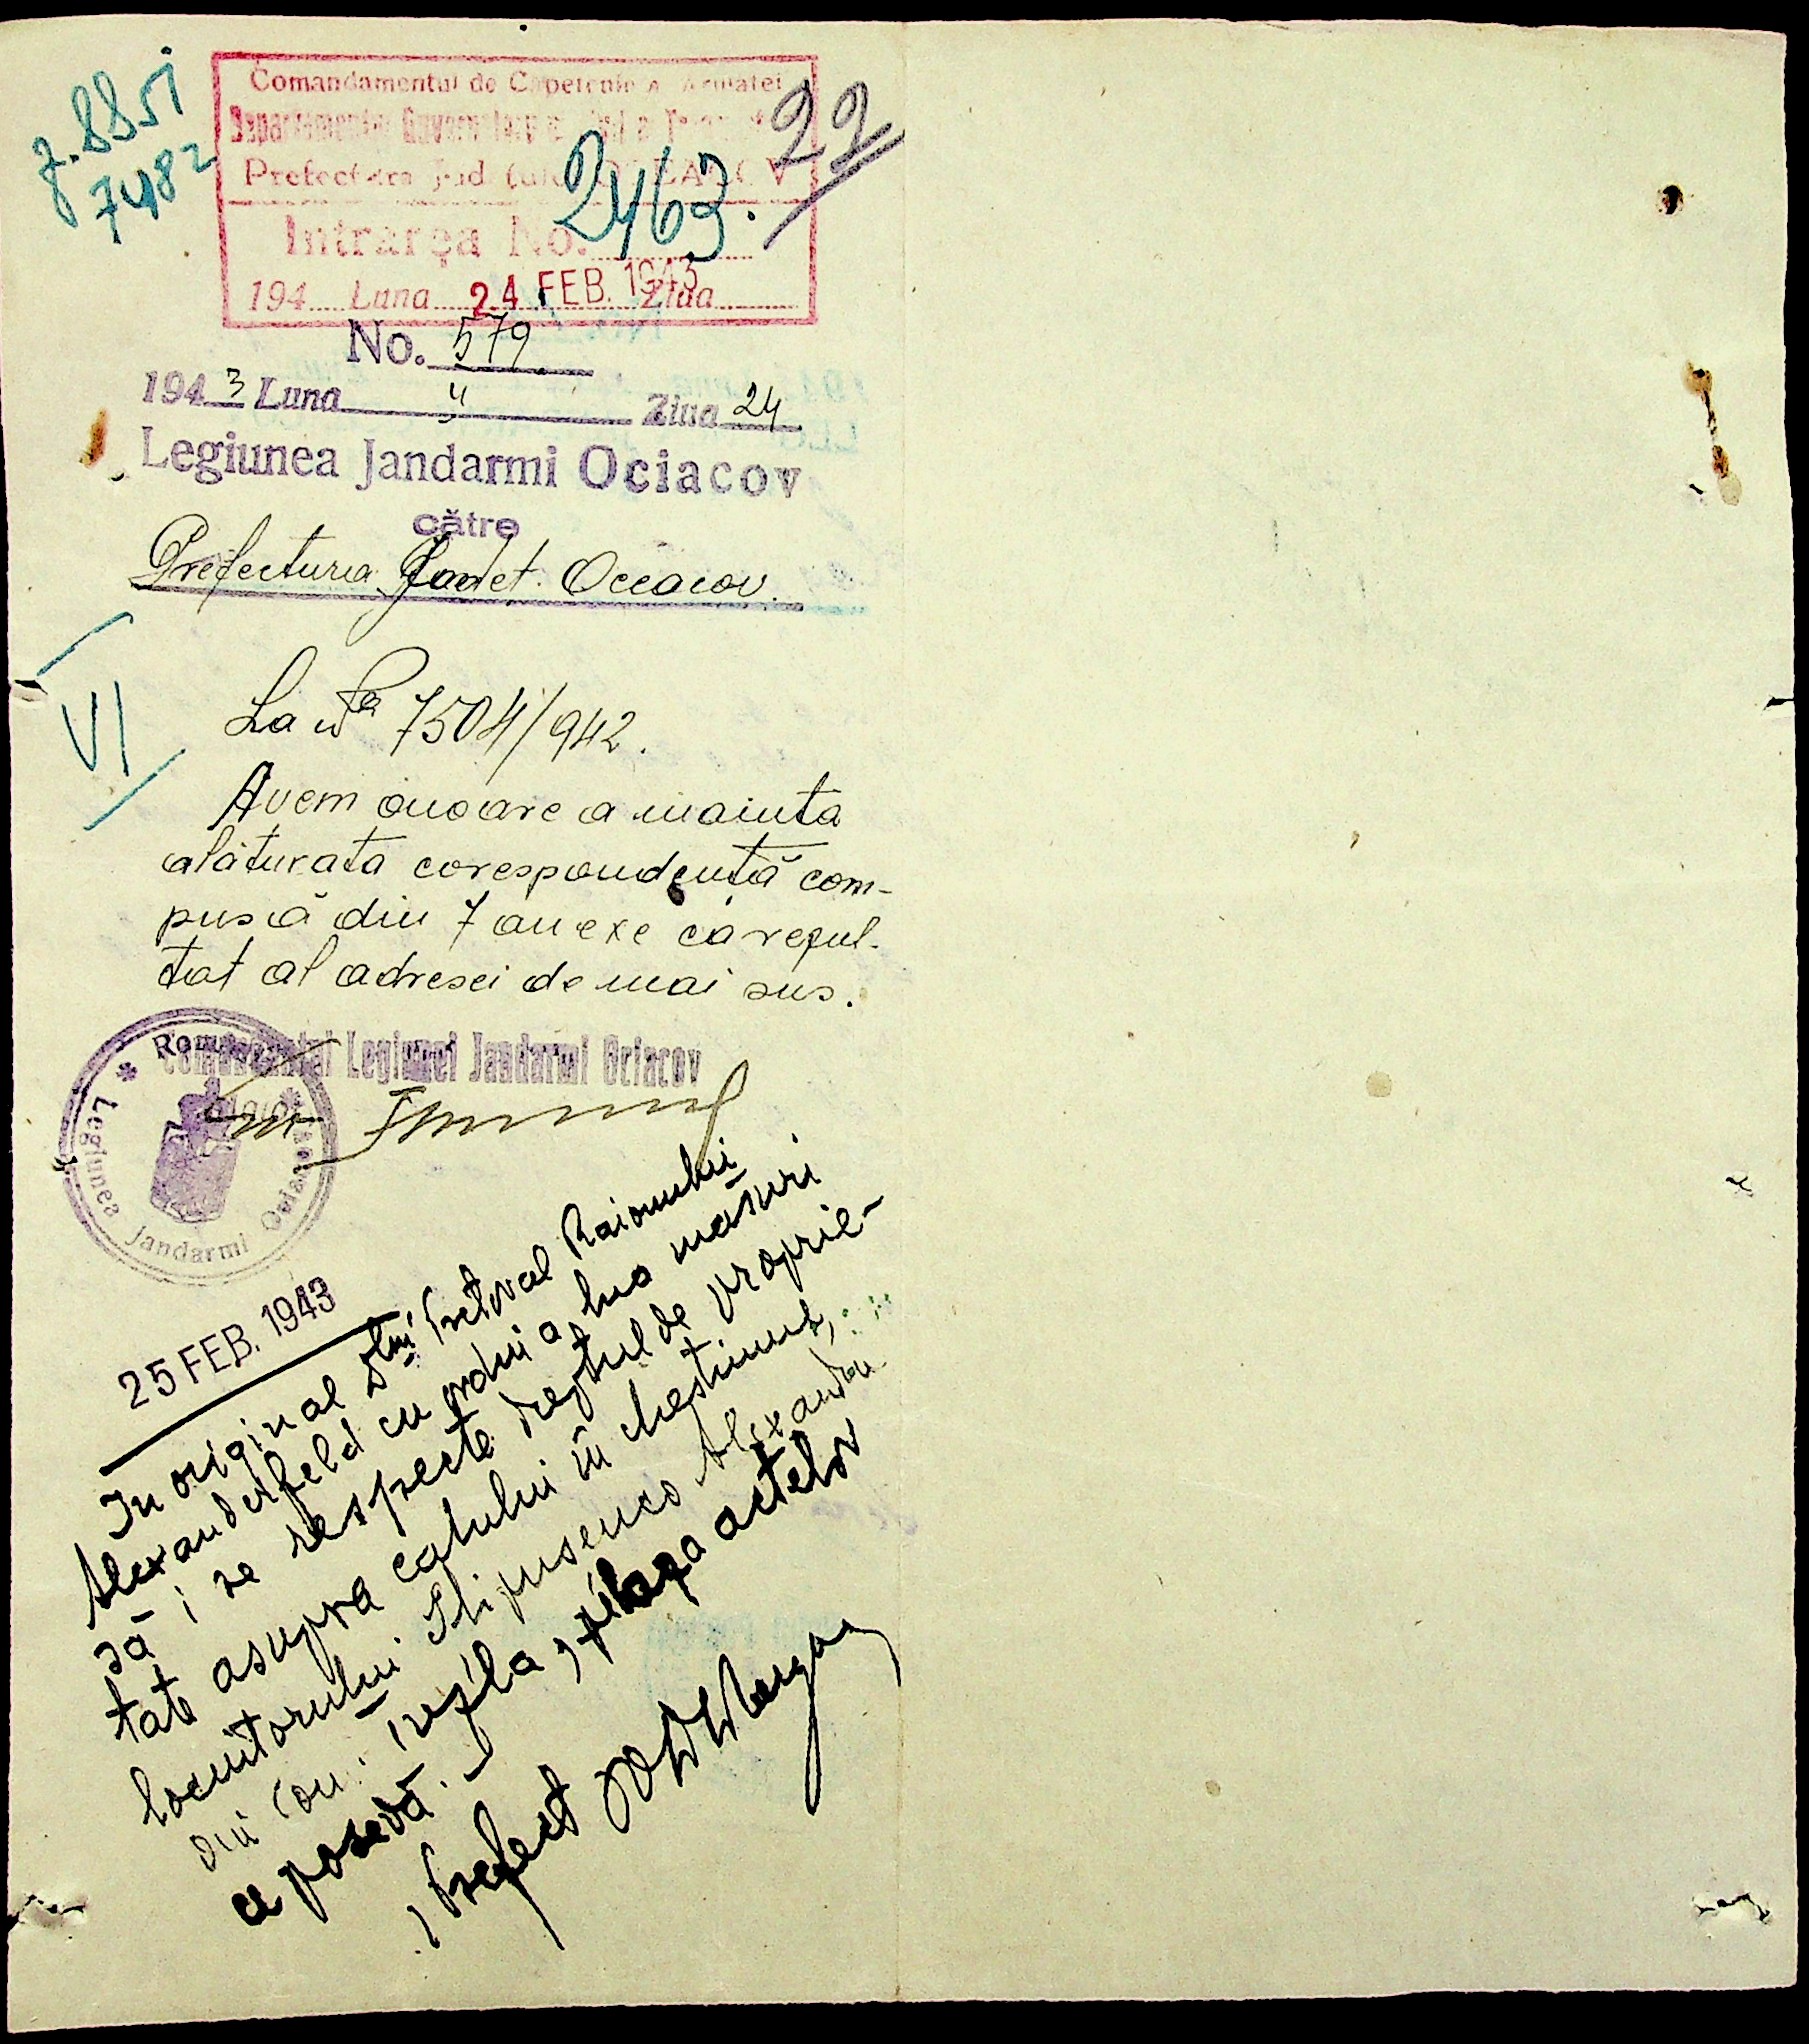 J. 8851
7482
Comandamentul de Capetenie al Armatei
Prefectura Județului OCEACOV
Intrarea No. 2463.
22
194 Luna 24 FEB. 1943 Ziua
No. 579
1943 Luna II Ziua 24
Legiunea Jandarmi Ociacov
către
Prefectura Județ. Oceacov.
VI
La No 7504/942.
Avem onoare a înainta
alăturata corespondență com-
pusă din 7 anexe ca rezul-
tat al adresei de mai sus.
Comandantul Legiunei Jandarmi Ociacov
Maior
România
Legiunea Jandarmi Ociacov
25 FEB. 1943
In original Dlui Pretoral Raionului
Alexanderfeld cu ordin a lua măsuri
să i se respecte dreptul de proprie-
tate asupra calului în chestiune,
locuitorului Alexandru
din com. actelor
ce posedă.-
Prefect